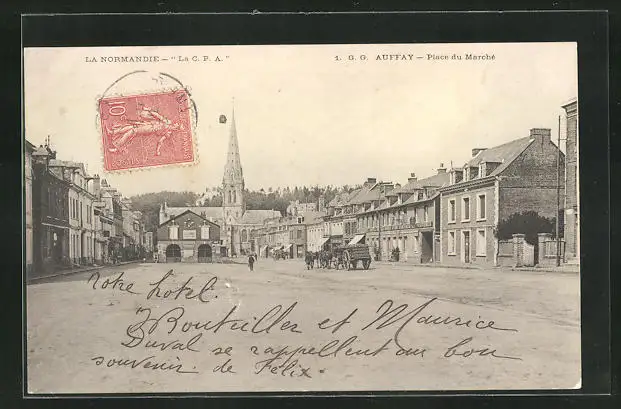 LA NORMANDIE — "LA C. P. A."
1. G. G. AUFFAY — Place du Marché
10
POSTES
Notre hotel.
Bouteiller et Maurice
Duval se rappellent au bon
souvenir. de Félix.